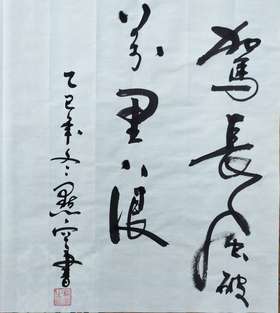 駕長風破
萬里浪
乙巳年冬書